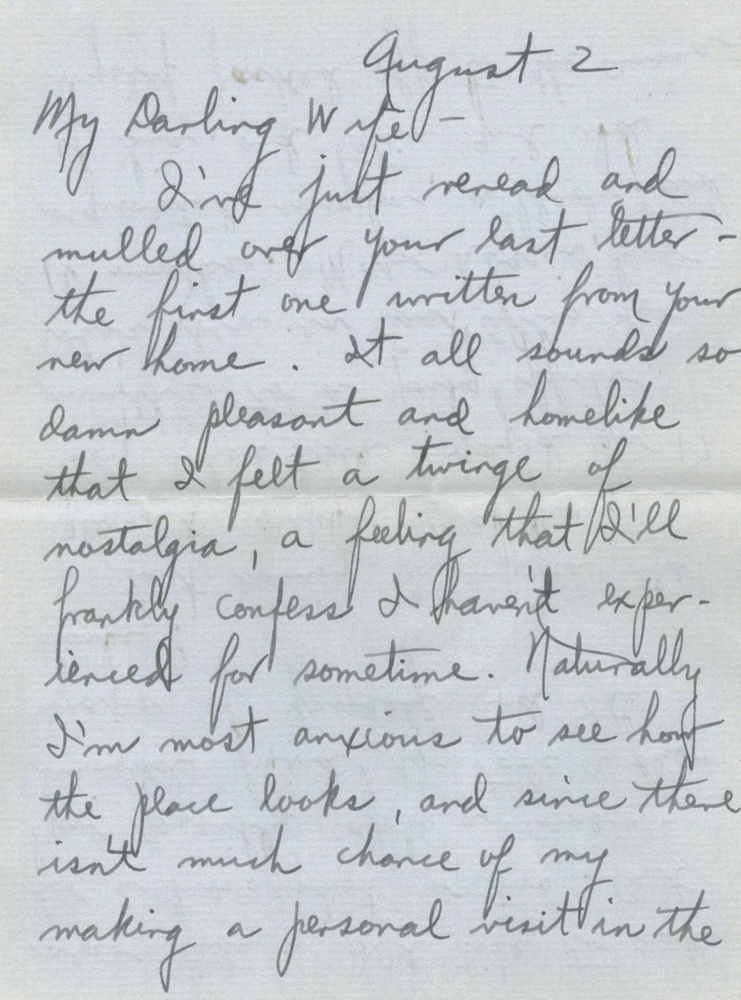 August 2
My Darling Wife -
I've just reread and
mulled over your last letter -
the first one written from your
new home. It all sounds so
damn pleasant and homelike
that I felt a twinge of
nostalgia, a feeling that I'll
frankly confess I haven't exper-
ienced for sometime. Naturally
I'm most anxious to see how
the place looks, and since there
isn't much chance of my
making a personal visit in the